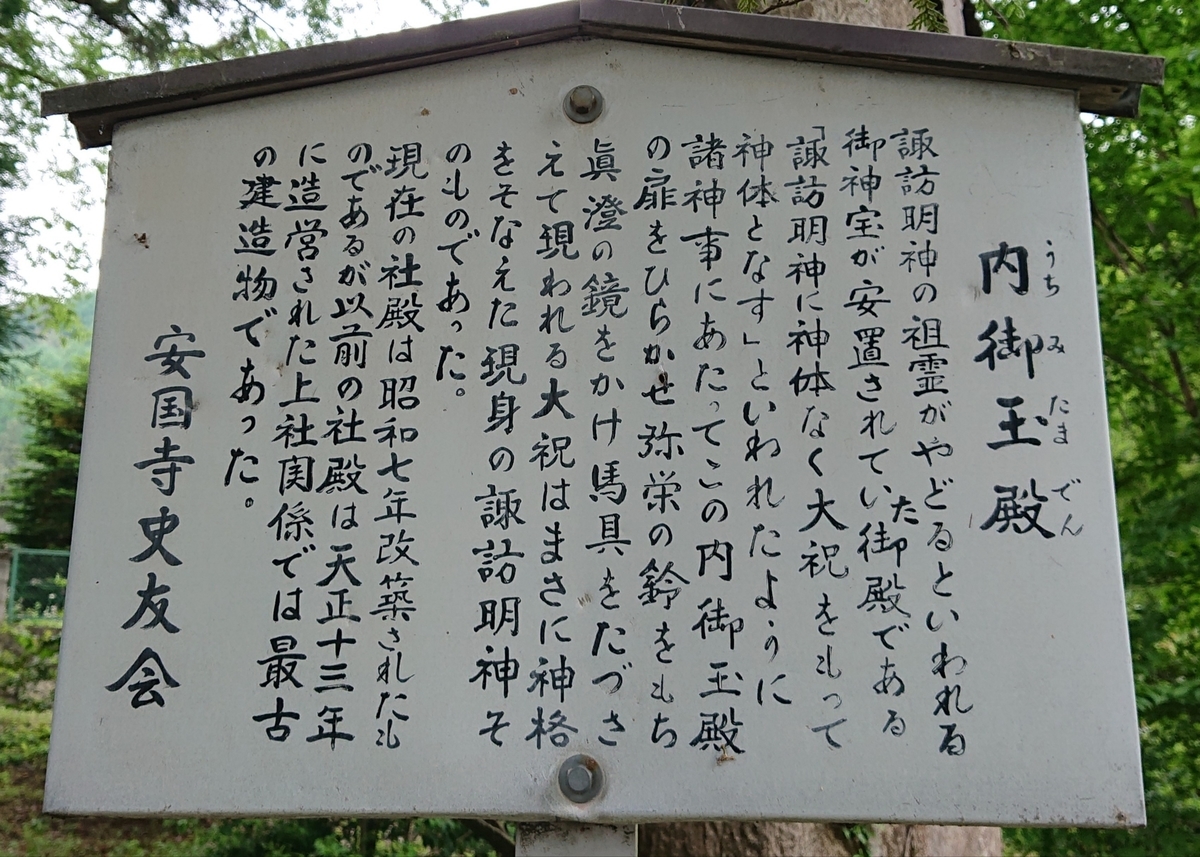 内御玉殿
うちみたまでん
諏訪明神の祖霊がやどるといわれる
御神宝が安置されてい御殿である
た
「諏訪明神に神体なく大祝をもって
神体となす」といわれたように
諸神事にあたってこの内御玉殿
の扉をひらかせ弥栄の鈴をもち
眞澄の鏡をかけ馬具をたづさ
えて現われる大祝はまさに神格
をそなえた現身の諏訪明神そ
のものであった。
現在の社殿は昭和七年改築されたも
のであるが以前の社殿は天正十三年
に造営された上社関係では最古
の建造物であった。
安国寺史友会